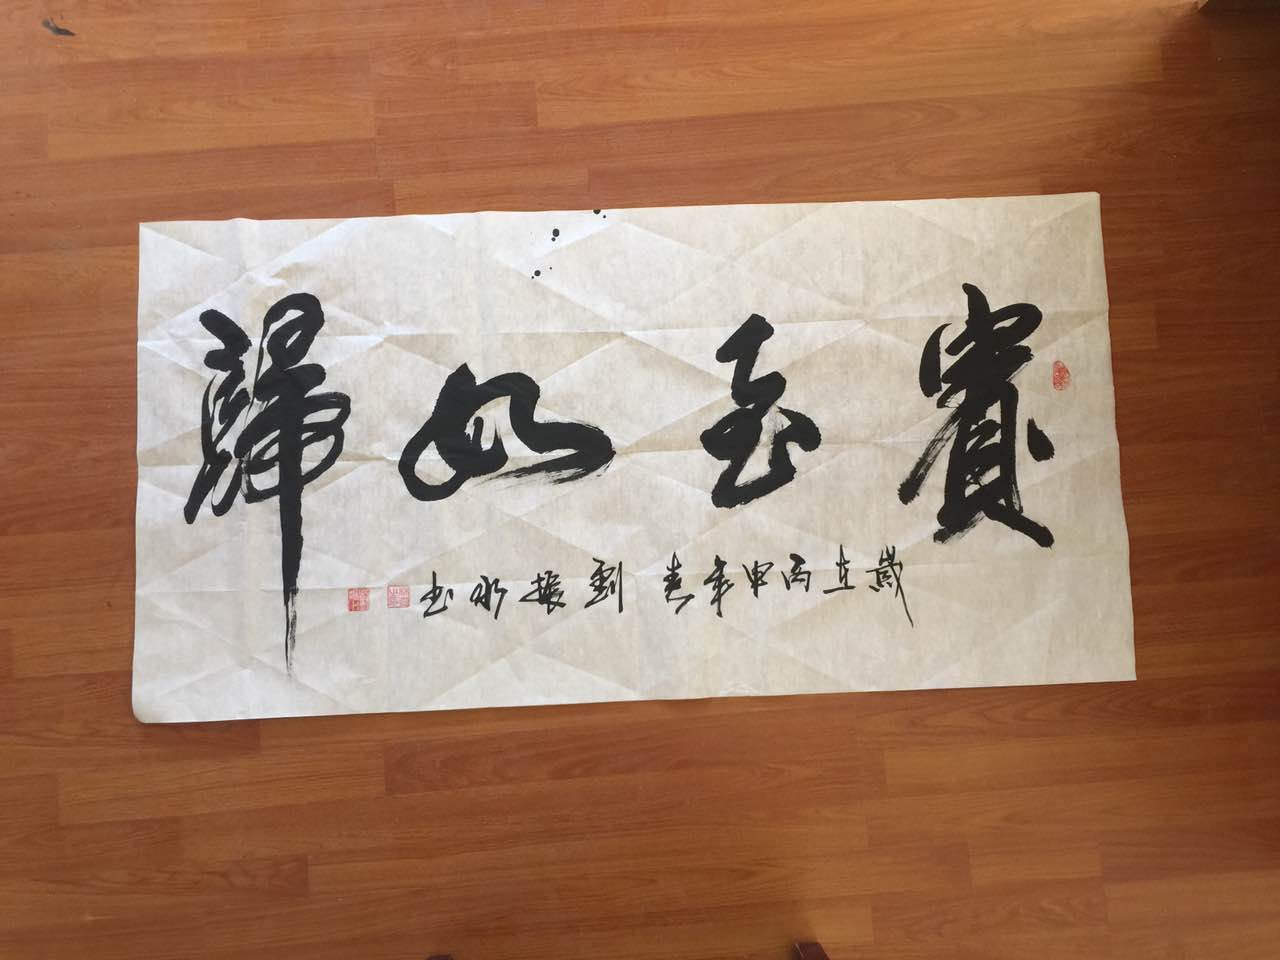 賓至如歸
歲在丙申年春劉振水书